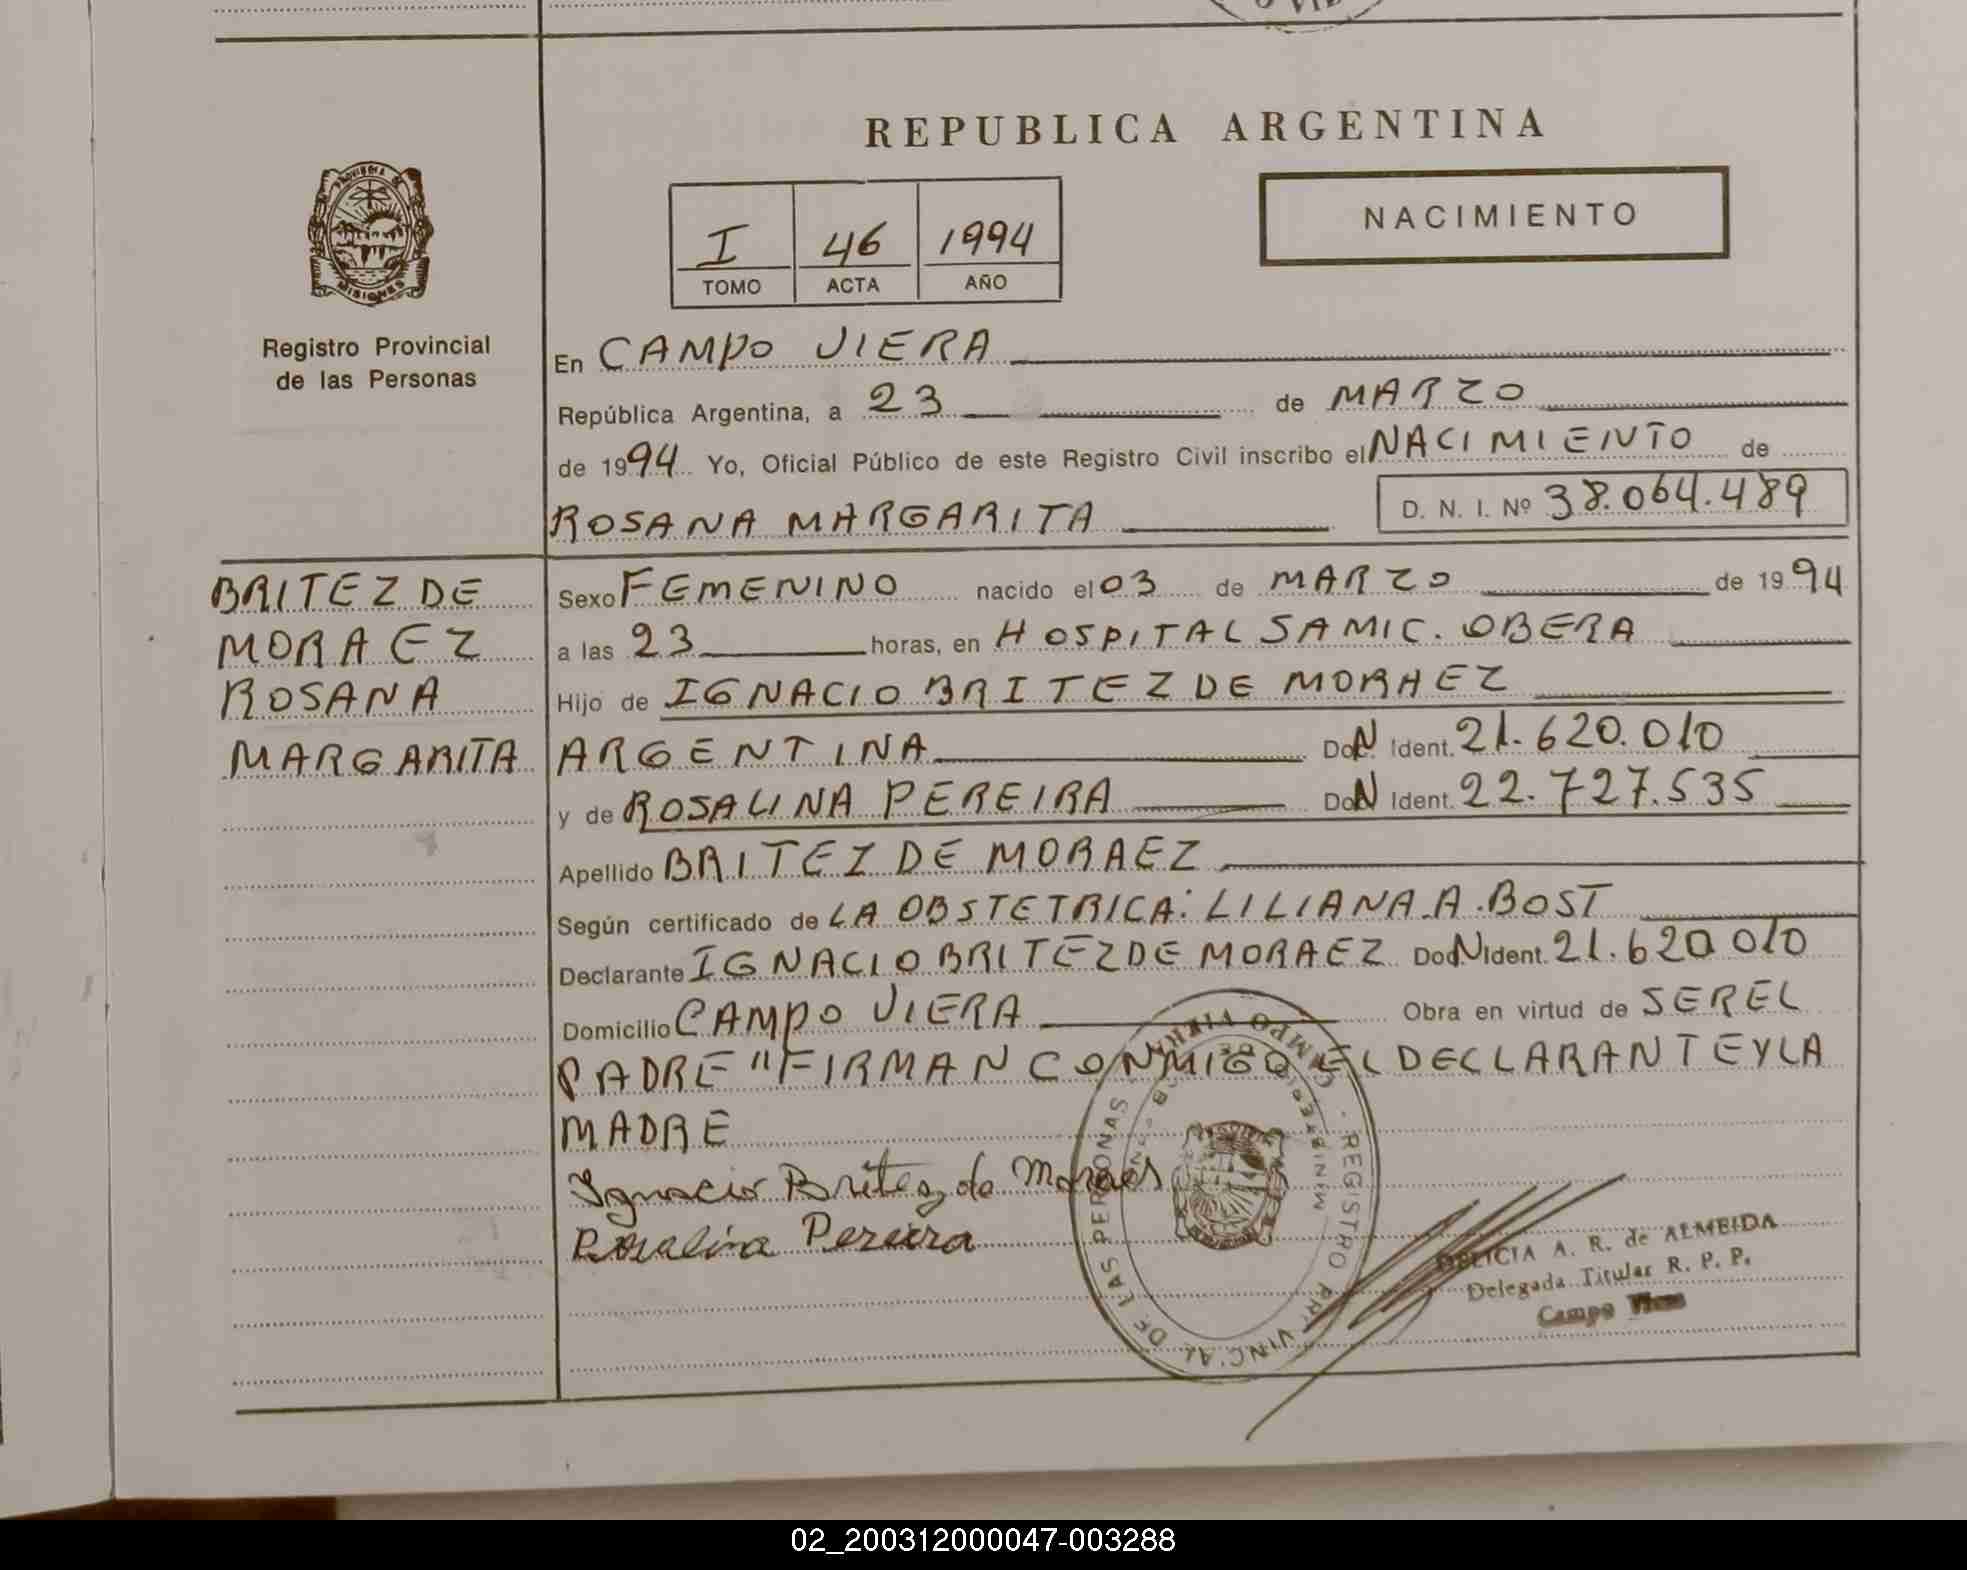 REPUBLICA ARGENTINA
NACIMIENTO
I 46 1994
TOMO ACTA AÑO
PROVINCIA DE MISIONES
Registro Provincial
de las Personas
En CAMPO VIERA
República Argentina, a 23 de MARZO
de 1994 Yo, Oficial Público de este Registro Civil inscribo el NACIMIENTO de
ROSANA MARGARITA D. N. I. Nº 38.064.489
BRITEZ DE
MORAEZ
ROSANA
MARGARITA
Sexo FEMENINO nacido el 03 de MARZO de 1994
a las 23 horas, en HOSPITAL SAMIC. OBERA
Hijo de IGNACIO BRITEZ DE MORAEZ
ARGENTINA Doc. N Ident. 21.620.010
y de ROSALINA PEREIRA Doc. N Ident. 22.727.535
Apellido BRITEZ DE MORAEZ
Según certificado de LA OBSTETRICA: LILIANA A. BOST
Declarante IGNACIO BRITEZ DE MORAEZ Doc. N Ident. 21.620.010
Domicilio CAMPO VIERA Obra en virtud de SER EL
PADRE "FIRMAN CONMIGO EL DECLARANTE Y LA
MADRE
Ignacio Britez de Moraes
Rosalina Pereira
REGISTRO PROVINCIAL DE LAS PERSONAS
CAMPO VIERA
DELICIA A. R. de ALMEIDA
Delegada Titular R. P. P.
Campo Viera
02_200312000047-003288